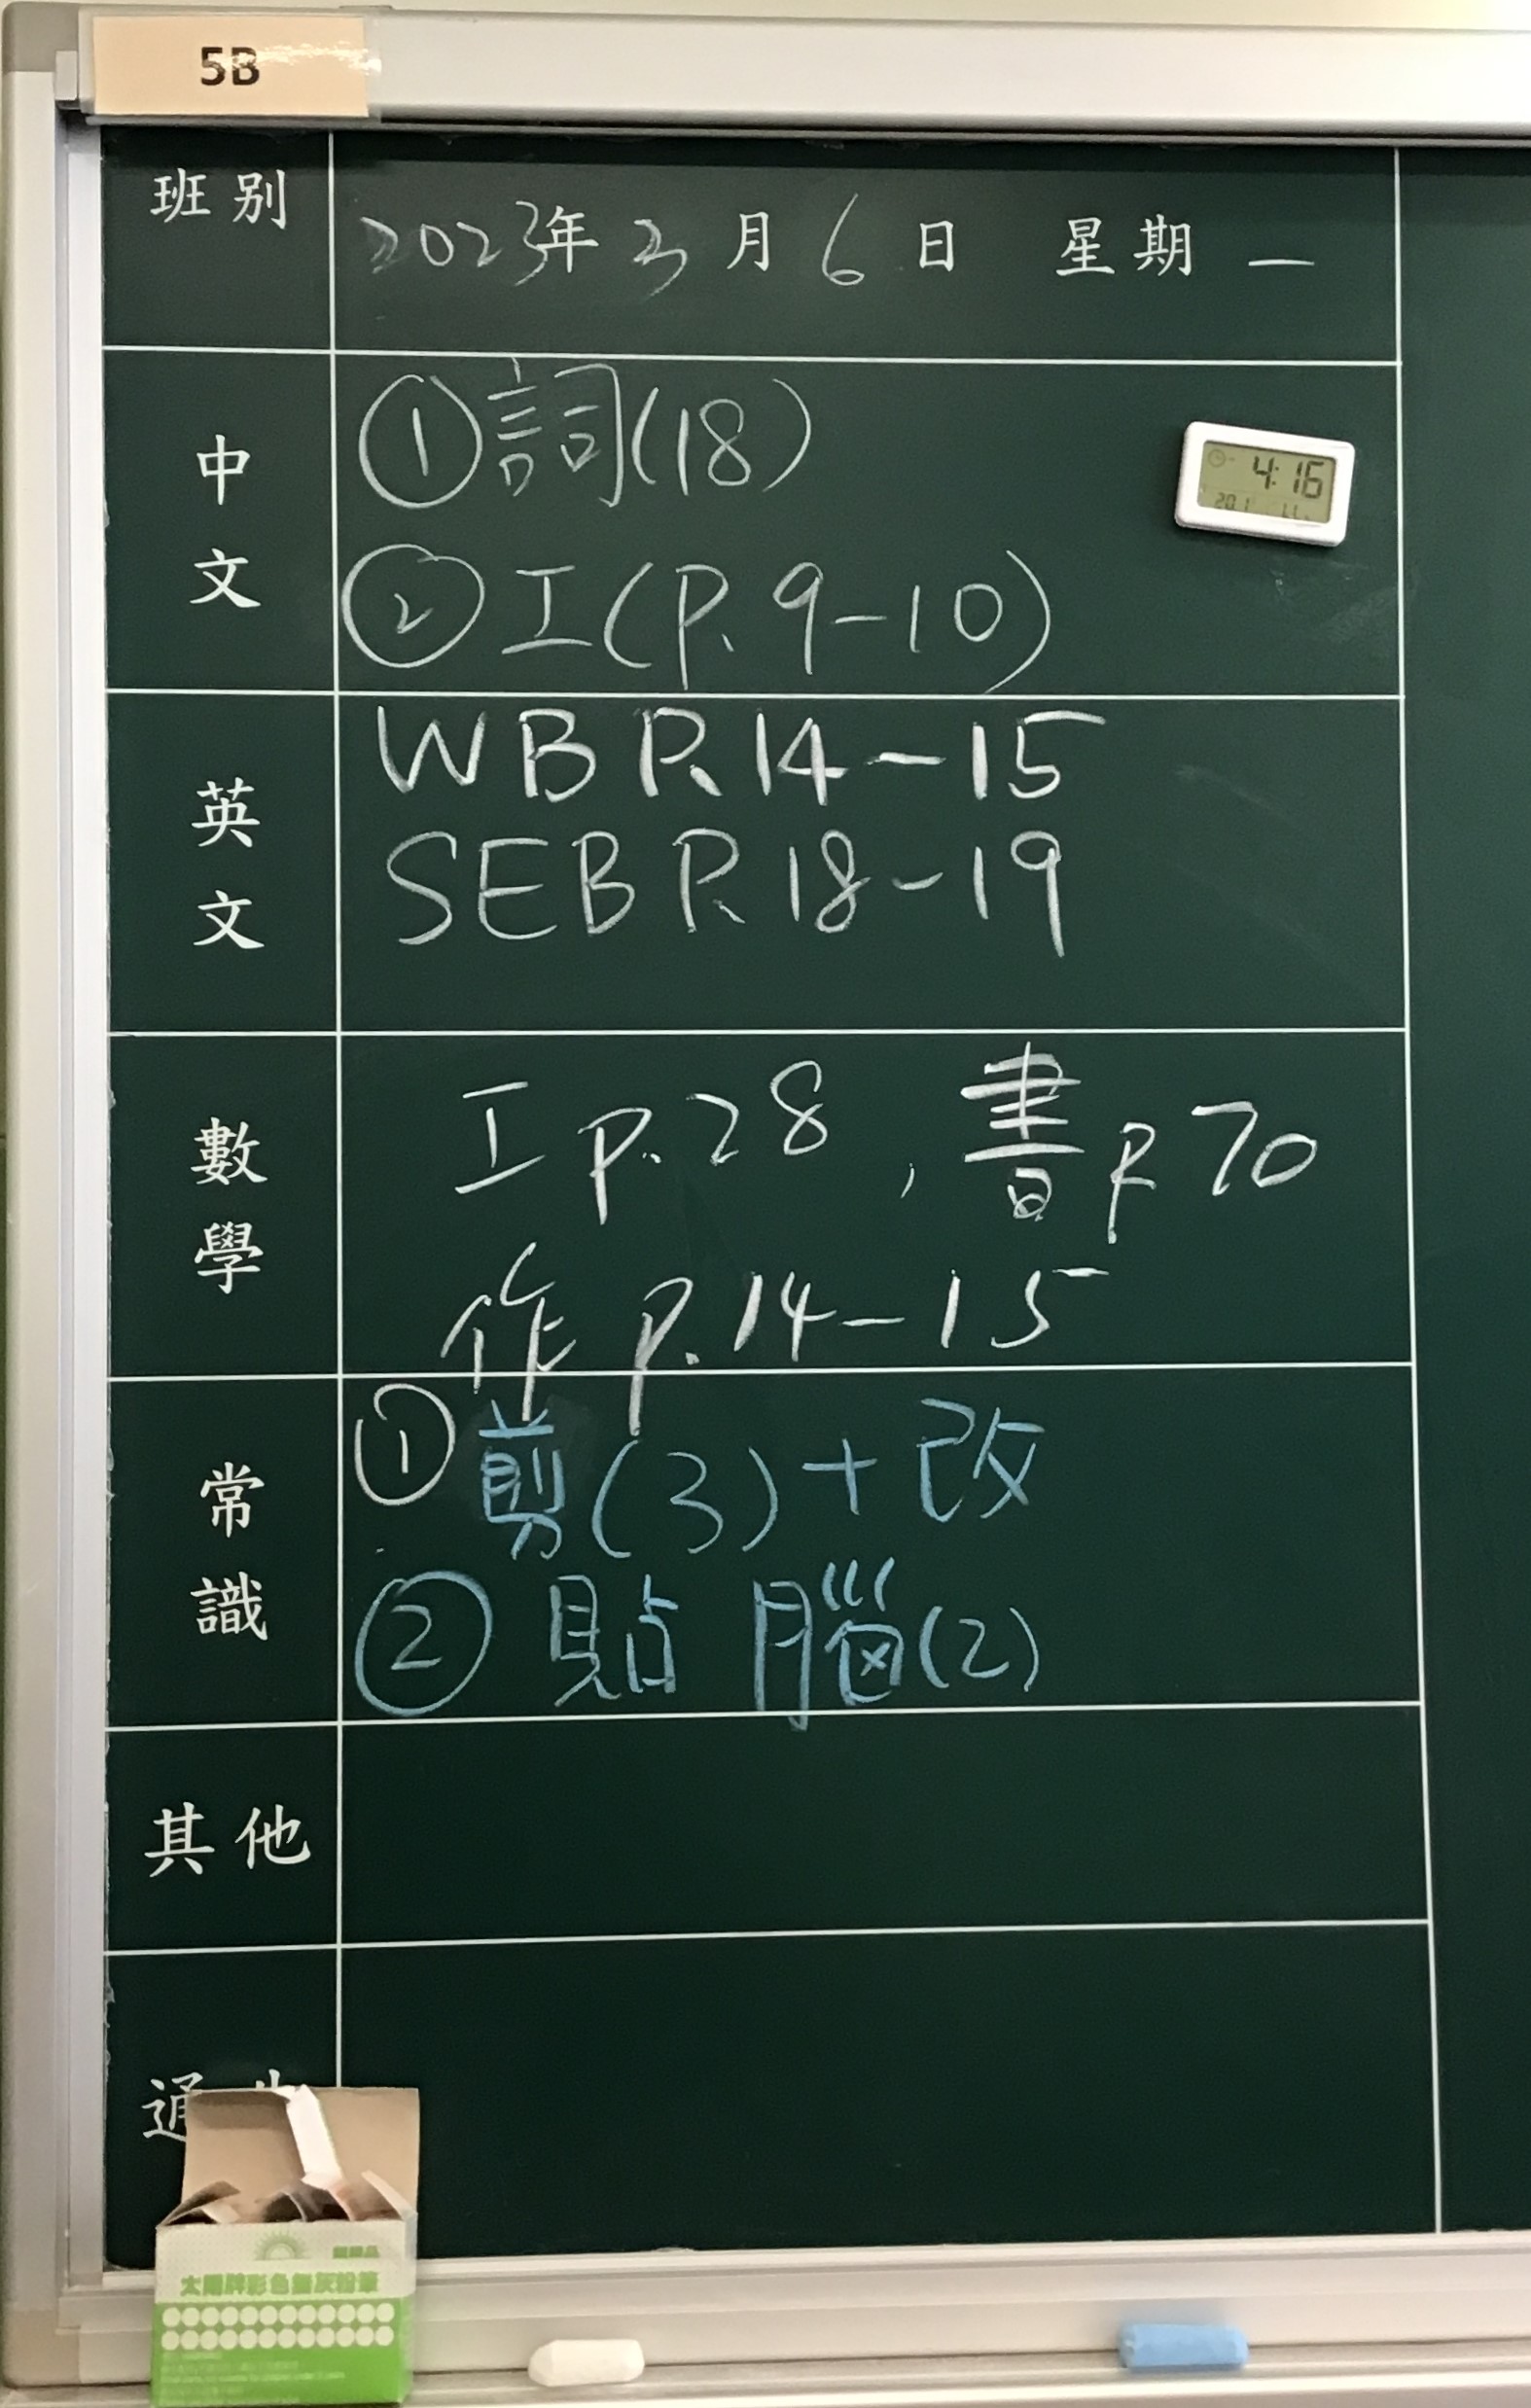 5B
班別
2023年3月6日 星期一
中文
①詞(18)
4:16
②工(P.9-10)
英文
WB P.14-15
SEB P.18-19
數學
工 P.28, 書 P.70
作 P.14-15
常識
①剪(3)+改
②貼 腦(2)
其他
通
太陽牌彩色無灰粉筆